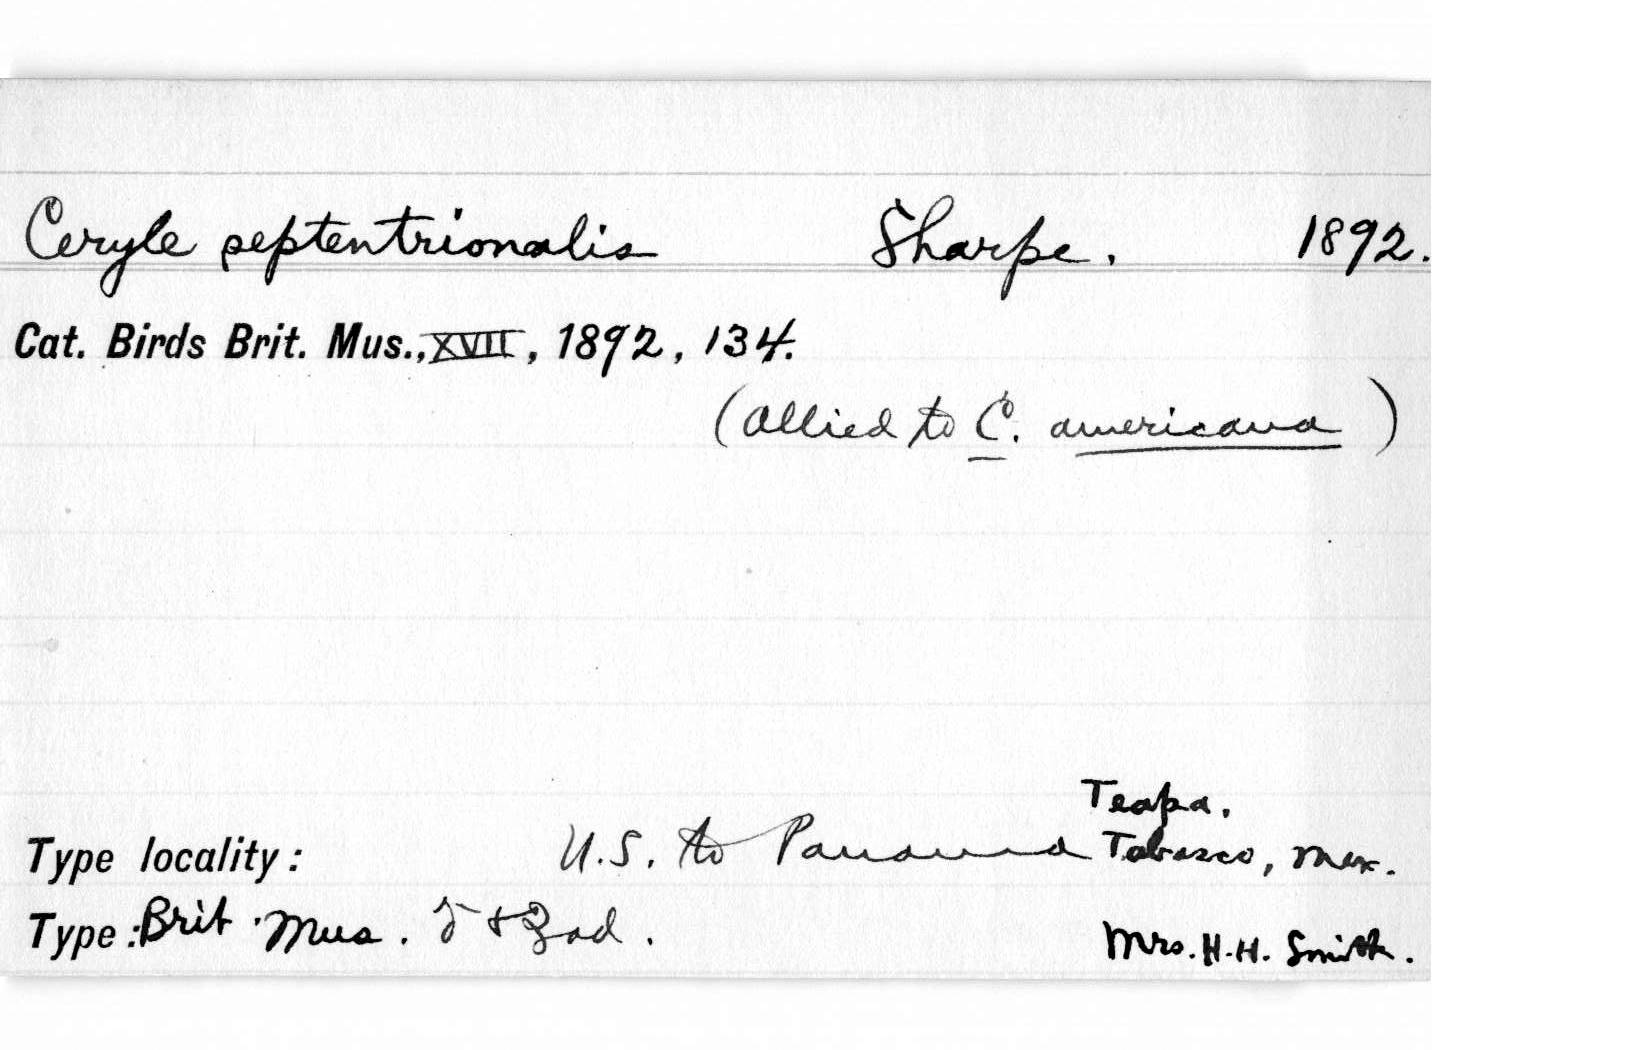 Ceryle septentrionalis Sharpe. 1892.
Cat. Birds Brit. Mus., XVII, 1892, 134.
(allied to C. americana)
Teapa.
Type locality: U.S. to Panama Tabasco, Mex.
Type: Brit. Mus. ad. Mrs. H. H. Smith.